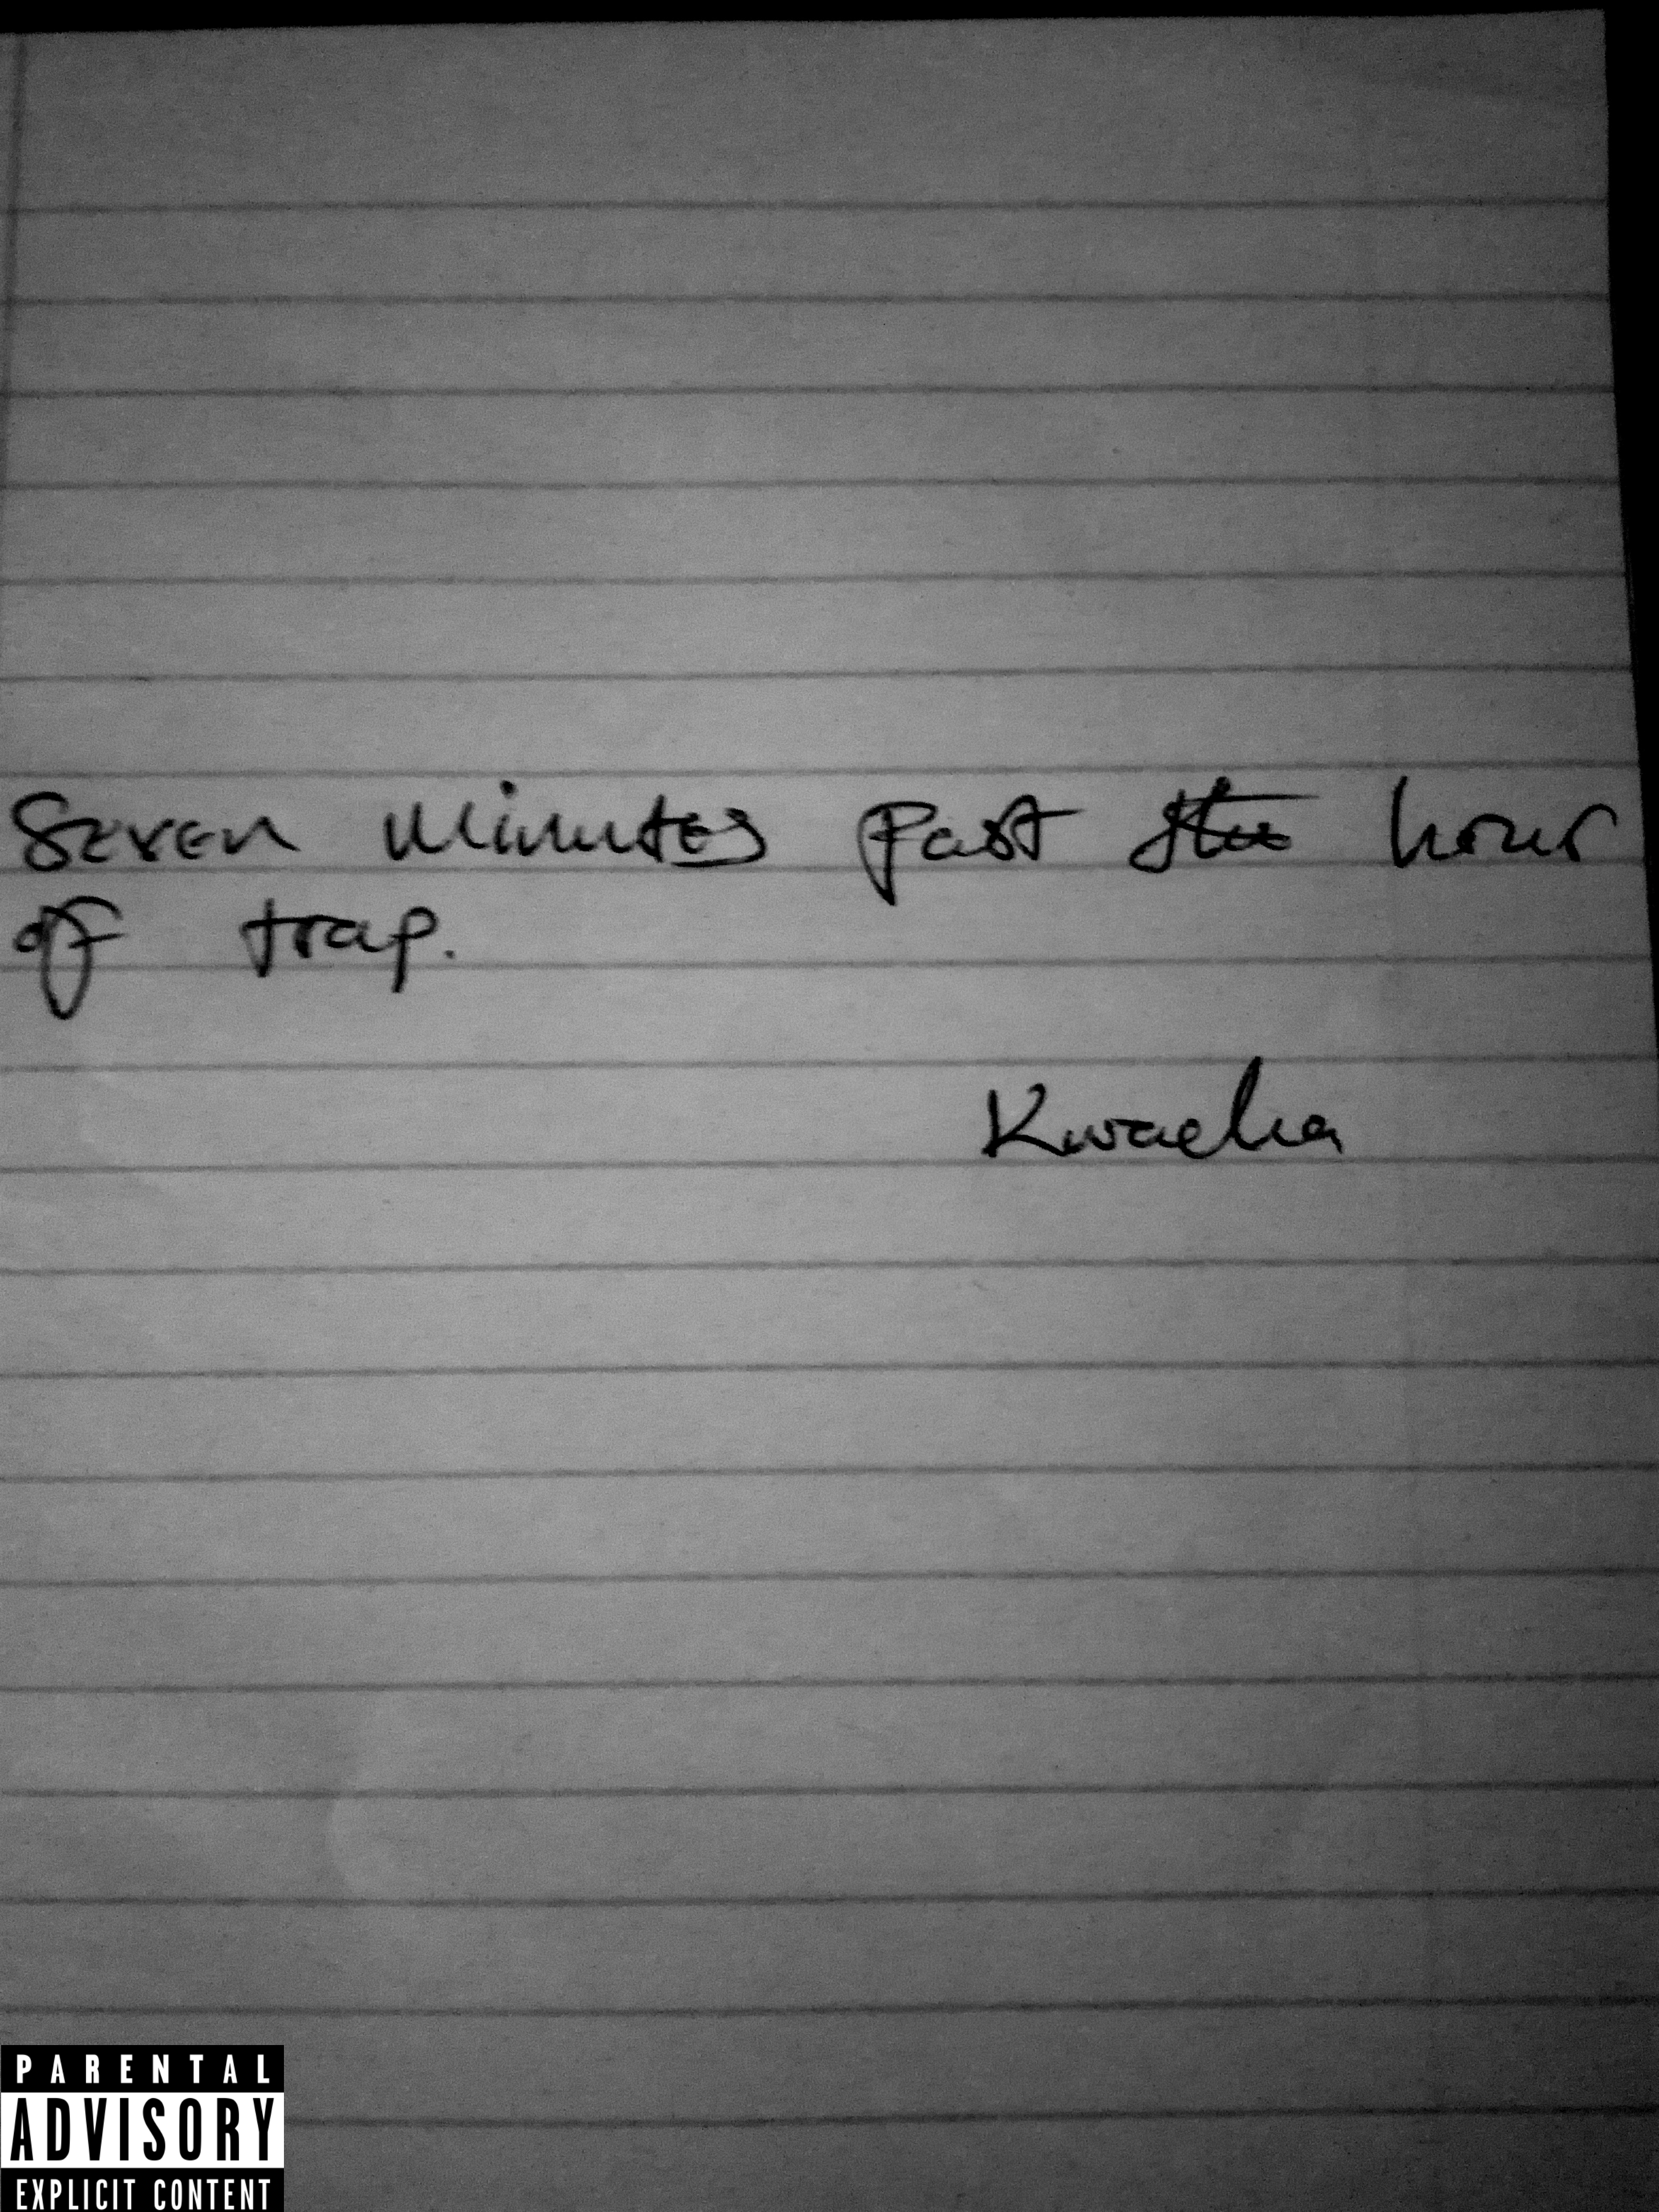 Seven Minutes Past the hour
of trap.
Kwacha
PARENTAL
ADVISORY
EXPLICIT CONTENT